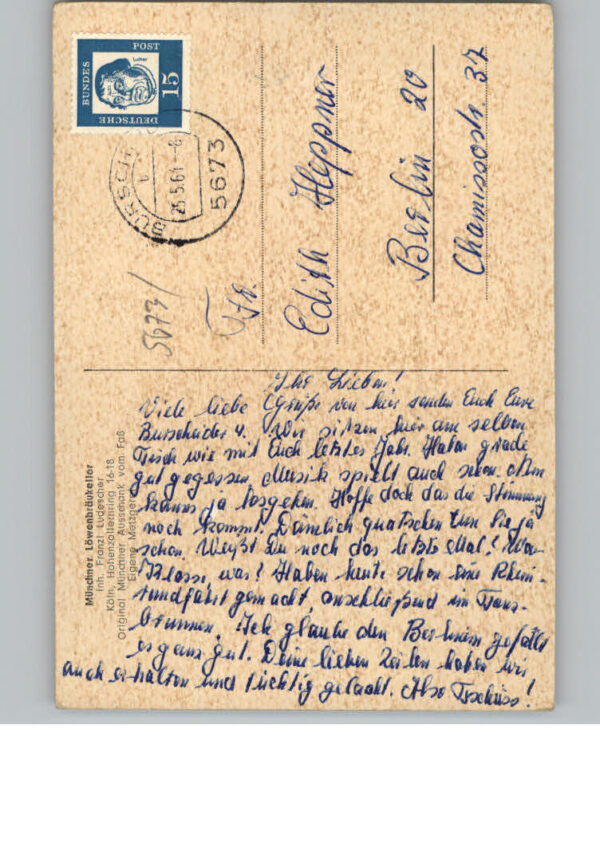 DEUTSCHE
BUNDES
POST
Luther
15
5673
25.5.61-8
5673/
Fr.
Edith Heppner
Berlin 20
Chamissostr. 37
Münchner Löwenbräukeller
Inh. Franzl Ludescher
Köln, Hohenzollernring 16-18
Original Münchner Ausschank vom Faß
Eigene Metzgerei
Ihr Lieben!
Viele liebe Grüße von hier senden Euch Eure
Burscheider 4. Wir sitzen hier am selben
Tisch wie mit Euch letztes Jahr. Haben grade
gut gegessen, Musik spielt auch schon. also
kanns ja losgehen. Hoffe doch das die Stimmung
noch kommt. Dämlich quatschen tun sie ja
schon. Weißt Du noch das letzte Mal? War
Klasse, was? Haben heute schon eine Rhein-
rundfahrt gemacht, anschließend im Tanz-
brunnen. Ich glaube den Berlinern gefällt
es ganz gut. Deine lieben Zeilen haben wir
auch erhalten und tüchtig gelacht. Also Tschüss!